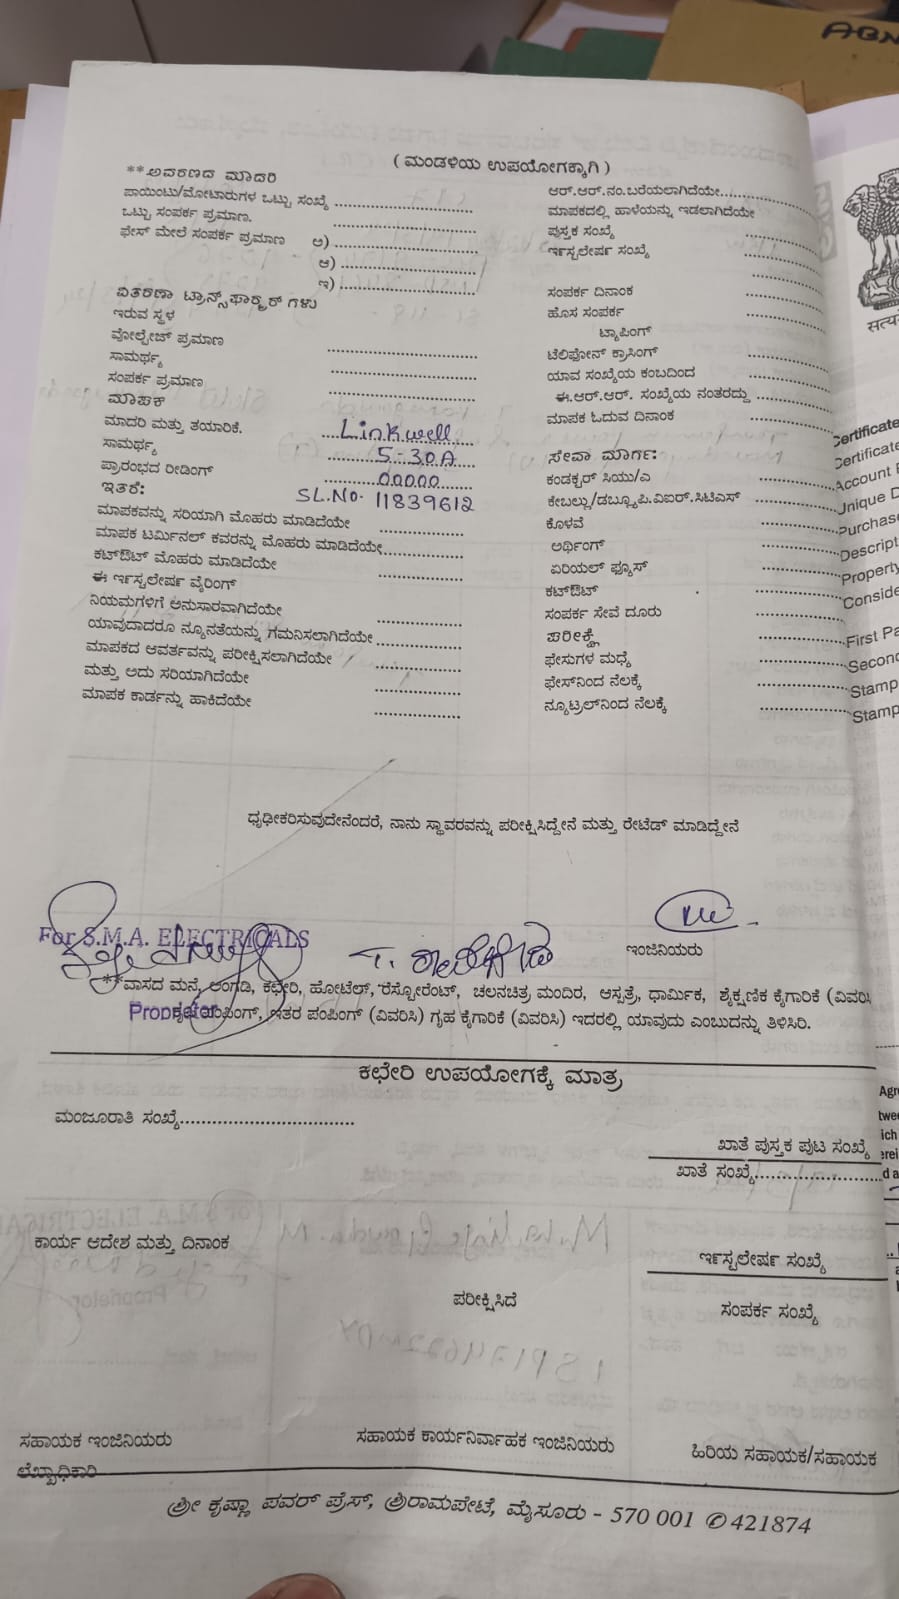 ABN
( ಮಂಡಳಿಯ ಉಪಯೋಗಕ್ಕಾಗಿ )
**ಆವರಣದ ಮಾದರಿ
ಪಾಯಿಂಟು/ಮೋಟಾರುಗಳ ಒಟ್ಟು ಸಂಖ್ಯೆ ....................
ಒಟ್ಟು ಸಂಪರ್ಕ ಪ್ರಮಾಣ. ....................
ಫೇಸ್ ಮೇಲೆ ಸಂಪರ್ಕ ಪ್ರಮಾಣ ಅ) ....................
ಆ) ....................
ಇ) ....................
ವಿತರಣಾ ಟ್ರಾನ್ಸ್‌ಫಾರ್‍ಮರ್ ಗಳು
ಇರುವ ಸ್ಥಳ
ವೋಲ್ಟೇಜ್ ಪ್ರಮಾಣ ....................
ಸಾಮರ್ಥ್ಯ ....................
ಸಂಪರ್ಕ ಪ್ರಮಾಣ ....................
ಮಾಪಕ
ಮಾದರಿ ಮತ್ತು ತಯಾರಿಕೆ. Linkwell
ಸಾಮರ್ಥ್ಯ 5-30A
ಪ್ರಾರಂಭದ ರೀಡಿಂಗ್ 00000
ಇತರೆ: SL.No. 11839612
ಮಾಪಕವನ್ನು ಸರಿಯಾಗಿ ಮೊಹರು ಮಾಡಿದೆಯೇ ....................
ಮಾಪಕ ಟರ್ಮಿನಲ್ ಕವರನ್ನು ಮೊಹರು ಮಾಡಿದೆಯೇ....................
ಕಟ್‌ಔಟ್ ಮೊಹರು ಮಾಡಿದೆಯೇ ....................
ಈ ಇನ್‌ಸ್ಟಲೇಷನ್ ವೈರಿಂಗ್
ನಿಯಮಗಳಿಗೆ ಅನುಸಾರವಾಗಿದೆಯೇ ....................
ಯಾವುದಾದರೂ ನ್ಯೂನತೆಯನ್ನು ಗಮನಿಸಲಾಗಿದೆಯೇ ....................
ಮಾಪಕದ ಆವರ್ತವನ್ನು ಪರೀಕ್ಷಿಸಲಾಗಿದೆಯೇ ....................
ಮತ್ತು ಅದು ಸರಿಯಾಗಿದೆಯೇ ....................
ಮಾಪಕ ಕಾರ್ಡನ್ನು ಹಾಕಿದೆಯೇ ....................
ಆರ್.ಆರ್.ನಂ.ಬರೆಯಲಾಗಿದೆಯೇ....................
ಮಾಪಕದಲ್ಲಿ ಹಾಳೆಯನ್ನು ಇಡಲಾಗಿದೆಯೇ ....................
ಪುಸ್ತಕ ಸಂಖ್ಯೆ ....................
ಇನ್‌ಸ್ಟಲೇಷನ್ ಸಂಖ್ಯೆ ....................
ಸಂಪರ್ಕ ದಿನಾಂಕ ....................
ಹೊಸ ಸಂಪರ್ಕ ....................
ಟ್ಯಾಪಿಂಗ್
ಟೆಲಿಫೋನ್ ಕ್ರಾಸಿಂಗ್ ....................
ಯಾವ ಸಂಖ್ಯೆಯ ಕಂಬದಿಂದ ....................
ಈ.ಆರ್.ಆರ್. ಸಂಖ್ಯೆಯ ನಂತರದ್ದು ....................
ಮಾಪಕ ಓದುವ ದಿನಾಂಕ ....................
ಸೇವಾ ಮಾರ್ಗ:
ಕಂಡಕ್ಟರ್ ಸಿಯು/ಎ ....................
ಕೇಬಲ್ಲು/ಡಬ್ಲ್ಯೂ.ಪಿ.ವಿಐಆರ್.ಸಿಟಿಎಸ್ ....................
ಕೊಳವೆ ....................
ಅರ್ಥಿಂಗ್ ....................
ಏರಿಯಲ್ ಫ್ಯೂಸ್ ....................
ಕಟ್‌ಔಟ್ ....................
ಸಂಪರ್ಕ ಸೇವೆ ದೂರು ....................
ಪರೀಕ್ಷೆ ....................
ಫೇಸುಗಳ ಮಧ್ಯೆ ....................
ಫೇಸ್‌ನಿಂದ ನೆಲಕ್ಕೆ ....................
ನ್ಯೂಟ್ರಲ್‌ನಿಂದ ನೆಲಕ್ಕೆ ....................
ಧೃಢೀಕರಿಸುವುದೇನೆಂದರೆ, ನಾನು ಸ್ಥಾವರವನ್ನು ಪರೀಕ್ಷಿಸಿದ್ದೇನೆ ಮತ್ತು ರೇಟೆಡ್ ಮಾಡಿದ್ದೇನೆ
For S.M.A. ELECTRICALS
Proprietor
ಇಂಜಿನಿಯರು
**ವಾಸದ ಮನೆ, ಅಂಗಡಿ, ಕಛೇರಿ, ಹೋಟೆಲ್, ರೆಸ್ಟೋರೆಂಟ್, ಚಲನಚಿತ್ರ ಮಂದಿರ, ಆಸ್ಪತ್ರೆ, ಧಾರ್ಮಿಕ, ಶೈಕ್ಷಣಿಕ ಕೈಗಾರಿಕೆ (ವಿವರಿಸಿ
ಪಂಪಿಂಗ್, ಇತರ ಪಂಪಿಂಗ್ (ವಿವರಿಸಿ) ಗೃಹ ಕೈಗಾರಿಕೆ (ವಿವರಿಸಿ) ಇದರಲ್ಲಿ ಯಾವುದು ಎಂಬುದನ್ನು ತಿಳಿಸಿರಿ.
ಕಛೇರಿ ಉಪಯೋಗಕ್ಕೆ ಮಾತ್ರ
ಮಂಜೂರಾತಿ ಸಂಖ್ಯೆ..............................
ಖಾತೆ ಪುಸ್ತಕ ಪುಟ ಸಂಖ್ಯೆ
ಖಾತೆ ಸಂಖ್ಯೆ......................
ಕಾರ್ಯ ಆದೇಶ ಮತ್ತು ದಿನಾಂಕ
ಇನ್‌ಸ್ಟಲೇಷನ್ ಸಂಖ್ಯೆ
ಪರೀಕ್ಷಿಸಿದೆ
ಸಂಪರ್ಕ ಸಂಖ್ಯೆ
ಸಹಾಯಕ ಇಂಜಿನಿಯರು
ಸಹಾಯಕ ಕಾರ್ಯನಿರ್ವಾಹಕ ಇಂಜಿನಿಯರು
ಹಿರಿಯ ಸಹಾಯಕ/ಸಹಾಯಕ
ಲೆಖ್ಖಾಧಿಕಾರಿ
ಶ್ರೀ ಕೃಷ್ಣಾ ಪವರ್ ಪ್ರೆಸ್, ಶ್ರೀರಾಮಪೇಟೆ, ಮೈಸೂರು - 570 001 ✆ 421874
Certificate
Certificate
Account
Unique D
Purchase
Descript
Property
Conside
First Pa
Second
Stamp
Stamp